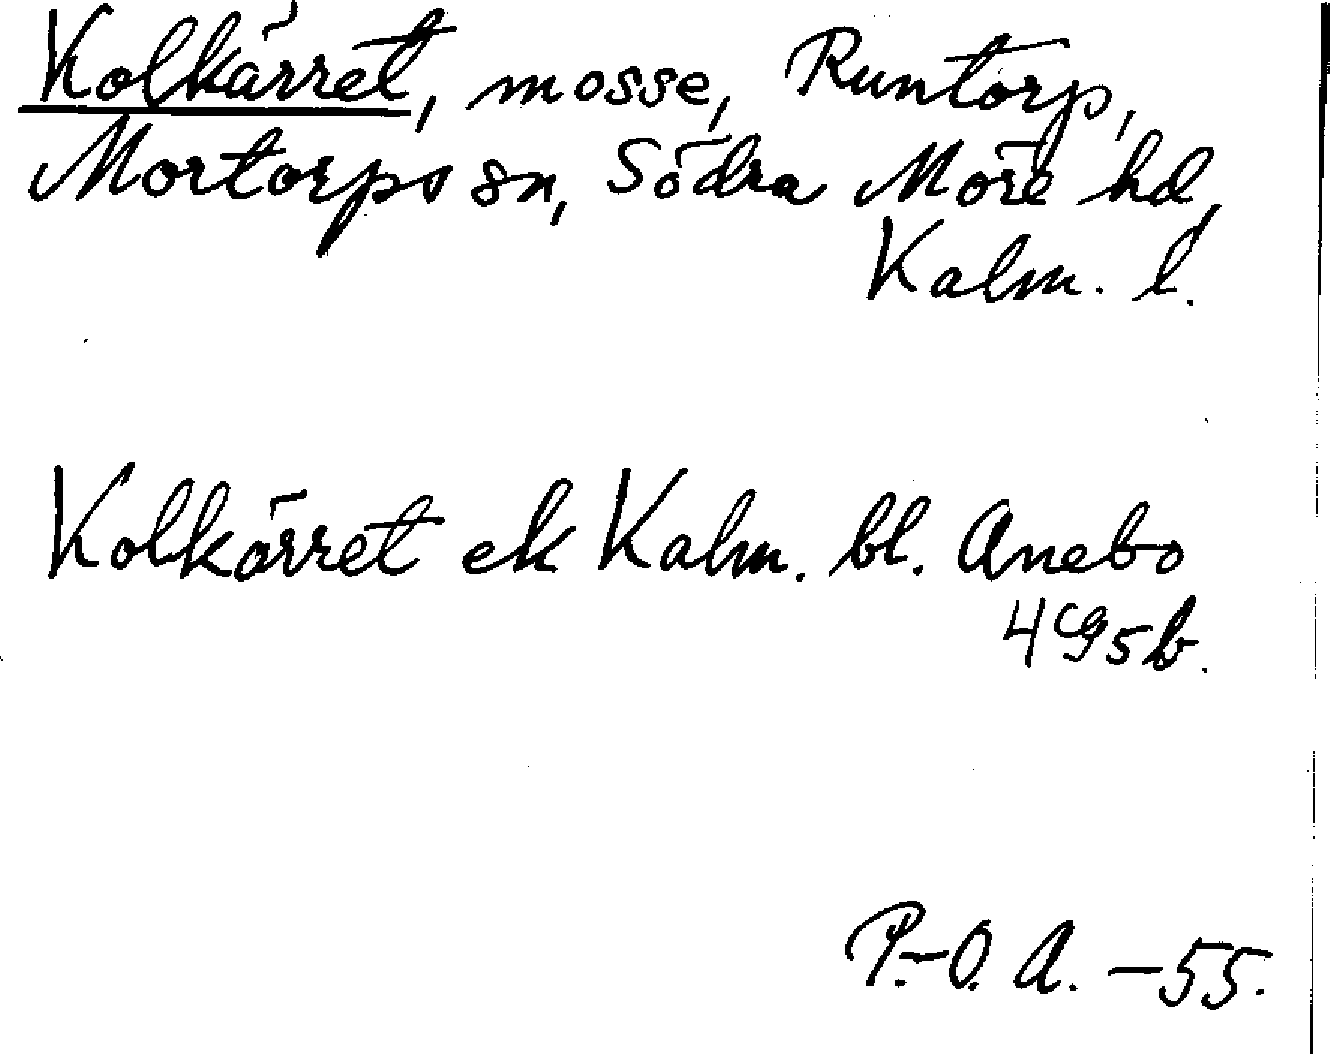 Kolkärret, mosse, Runtorp,
Mortorps sn, Södra Möre hd,
Kalm. l.
Kolkärret ek Kalm. bl. Anebo
4G5b.
P.-O. A. -55.